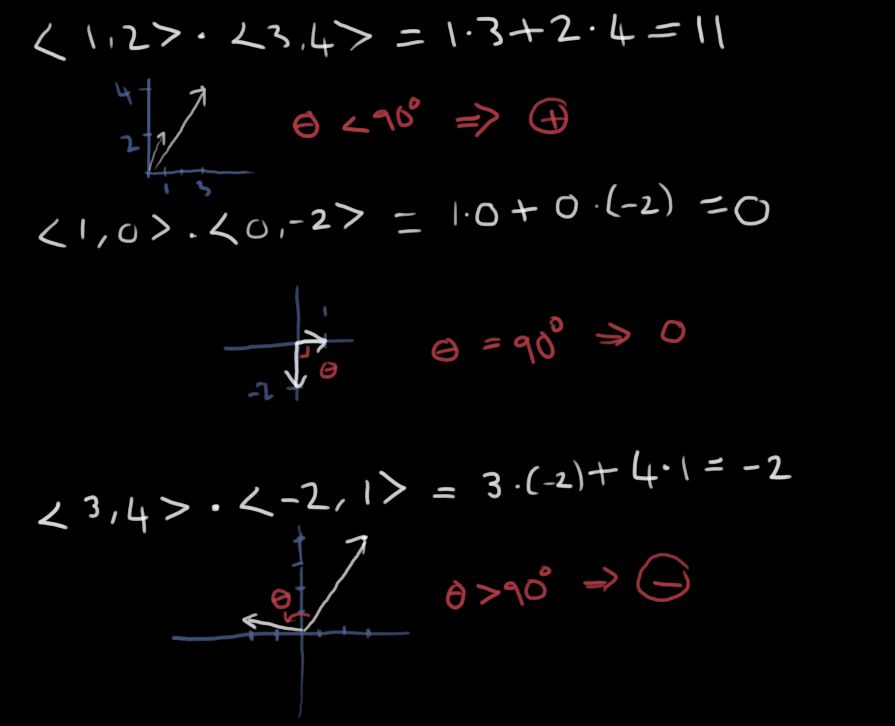 <1,2> · <3,4> = 1·3+2·4 = 11
4
2
1 3
θ < 90° ⇒ ⊕
<1,0> · <0,-2> = 1·0 + 0·(-2) = 0
1
θ
-2
θ = 90° ⇒ 0
<3,4> · <-2,1> = 3·(-2)+4·1 = -2
θ
θ > 90° ⇒ ⊖